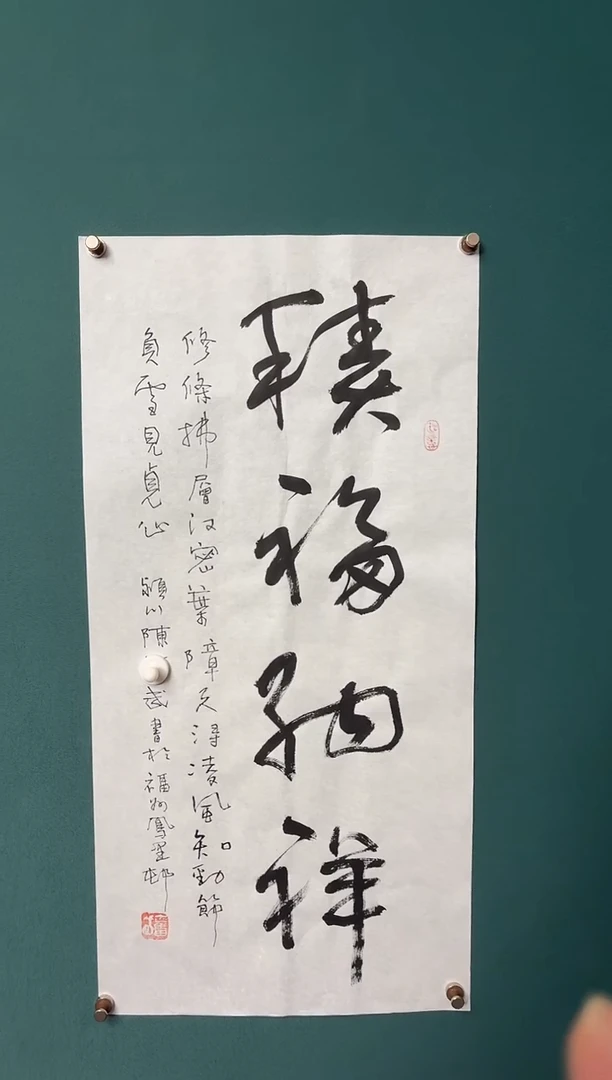 積福納祥
修條拂層汉密葉障天浔凌風知勁節
負雪見貞心 潁川陳 書於福州鳳 邨